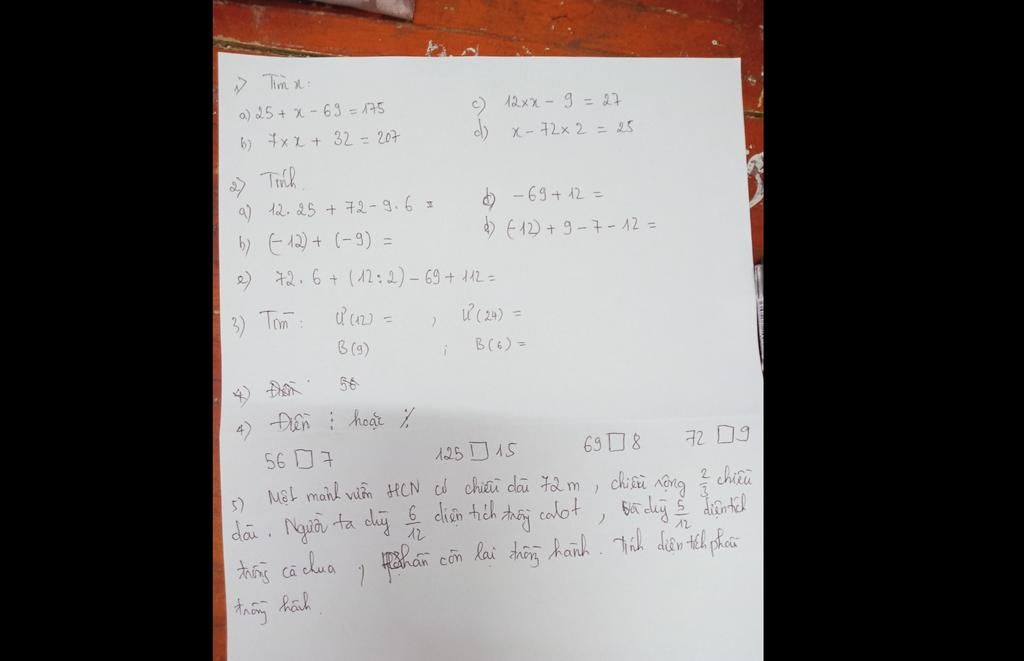 1) Tìm x:
a) 25 + x - 69 = 175
c) 12 x x - 9 = 27
b) 7 x x + 32 = 207
d) x - 72 x 2 = 25
2) Tính.
a) 12.25 + 72 - 9.6 =
c) -69 + 12 =
b) (-12) + (-9) =
d) (-12) + 9 - 7 - 12 =
e) 72.6 + (12:2) - 69 + 112 =
3) Tìm: Ư(12) = , Ư(24) =
B(9) ; B(6) =
4) Điền 56
4) Điền ⋮ hoặc ⋮̸
56 □ 7 125 □ 15 69 □ 8 72 □ 9
5) Một mảnh vườn HCN có chiều dài 72 m, chiều rộng 2/3 chiều
dài. Người ta dùng 6/12 diện tích trồng calot, và dùng 5/12 diện tích
trồng cà chua, phần còn lại trồng hành. Tính diện tích phần
trồng hành.